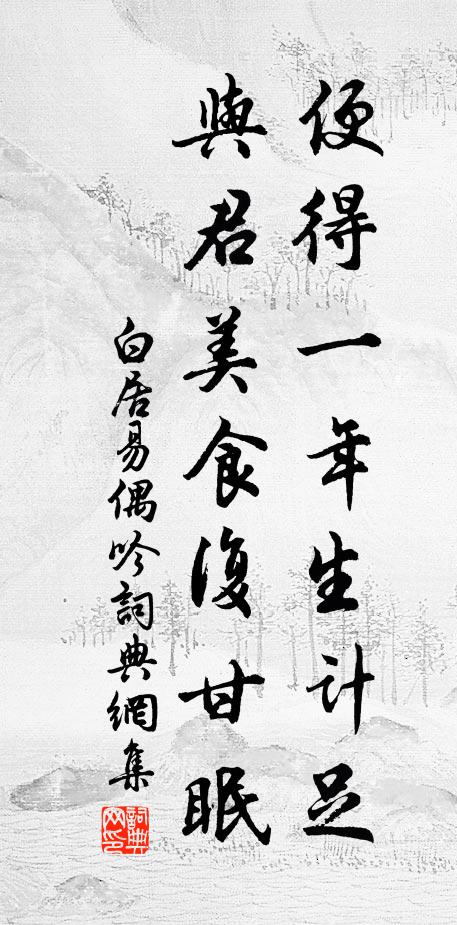 便得一年生計足
與君美食復甘眠
白居易偶吟詞典網集
詞典
网印